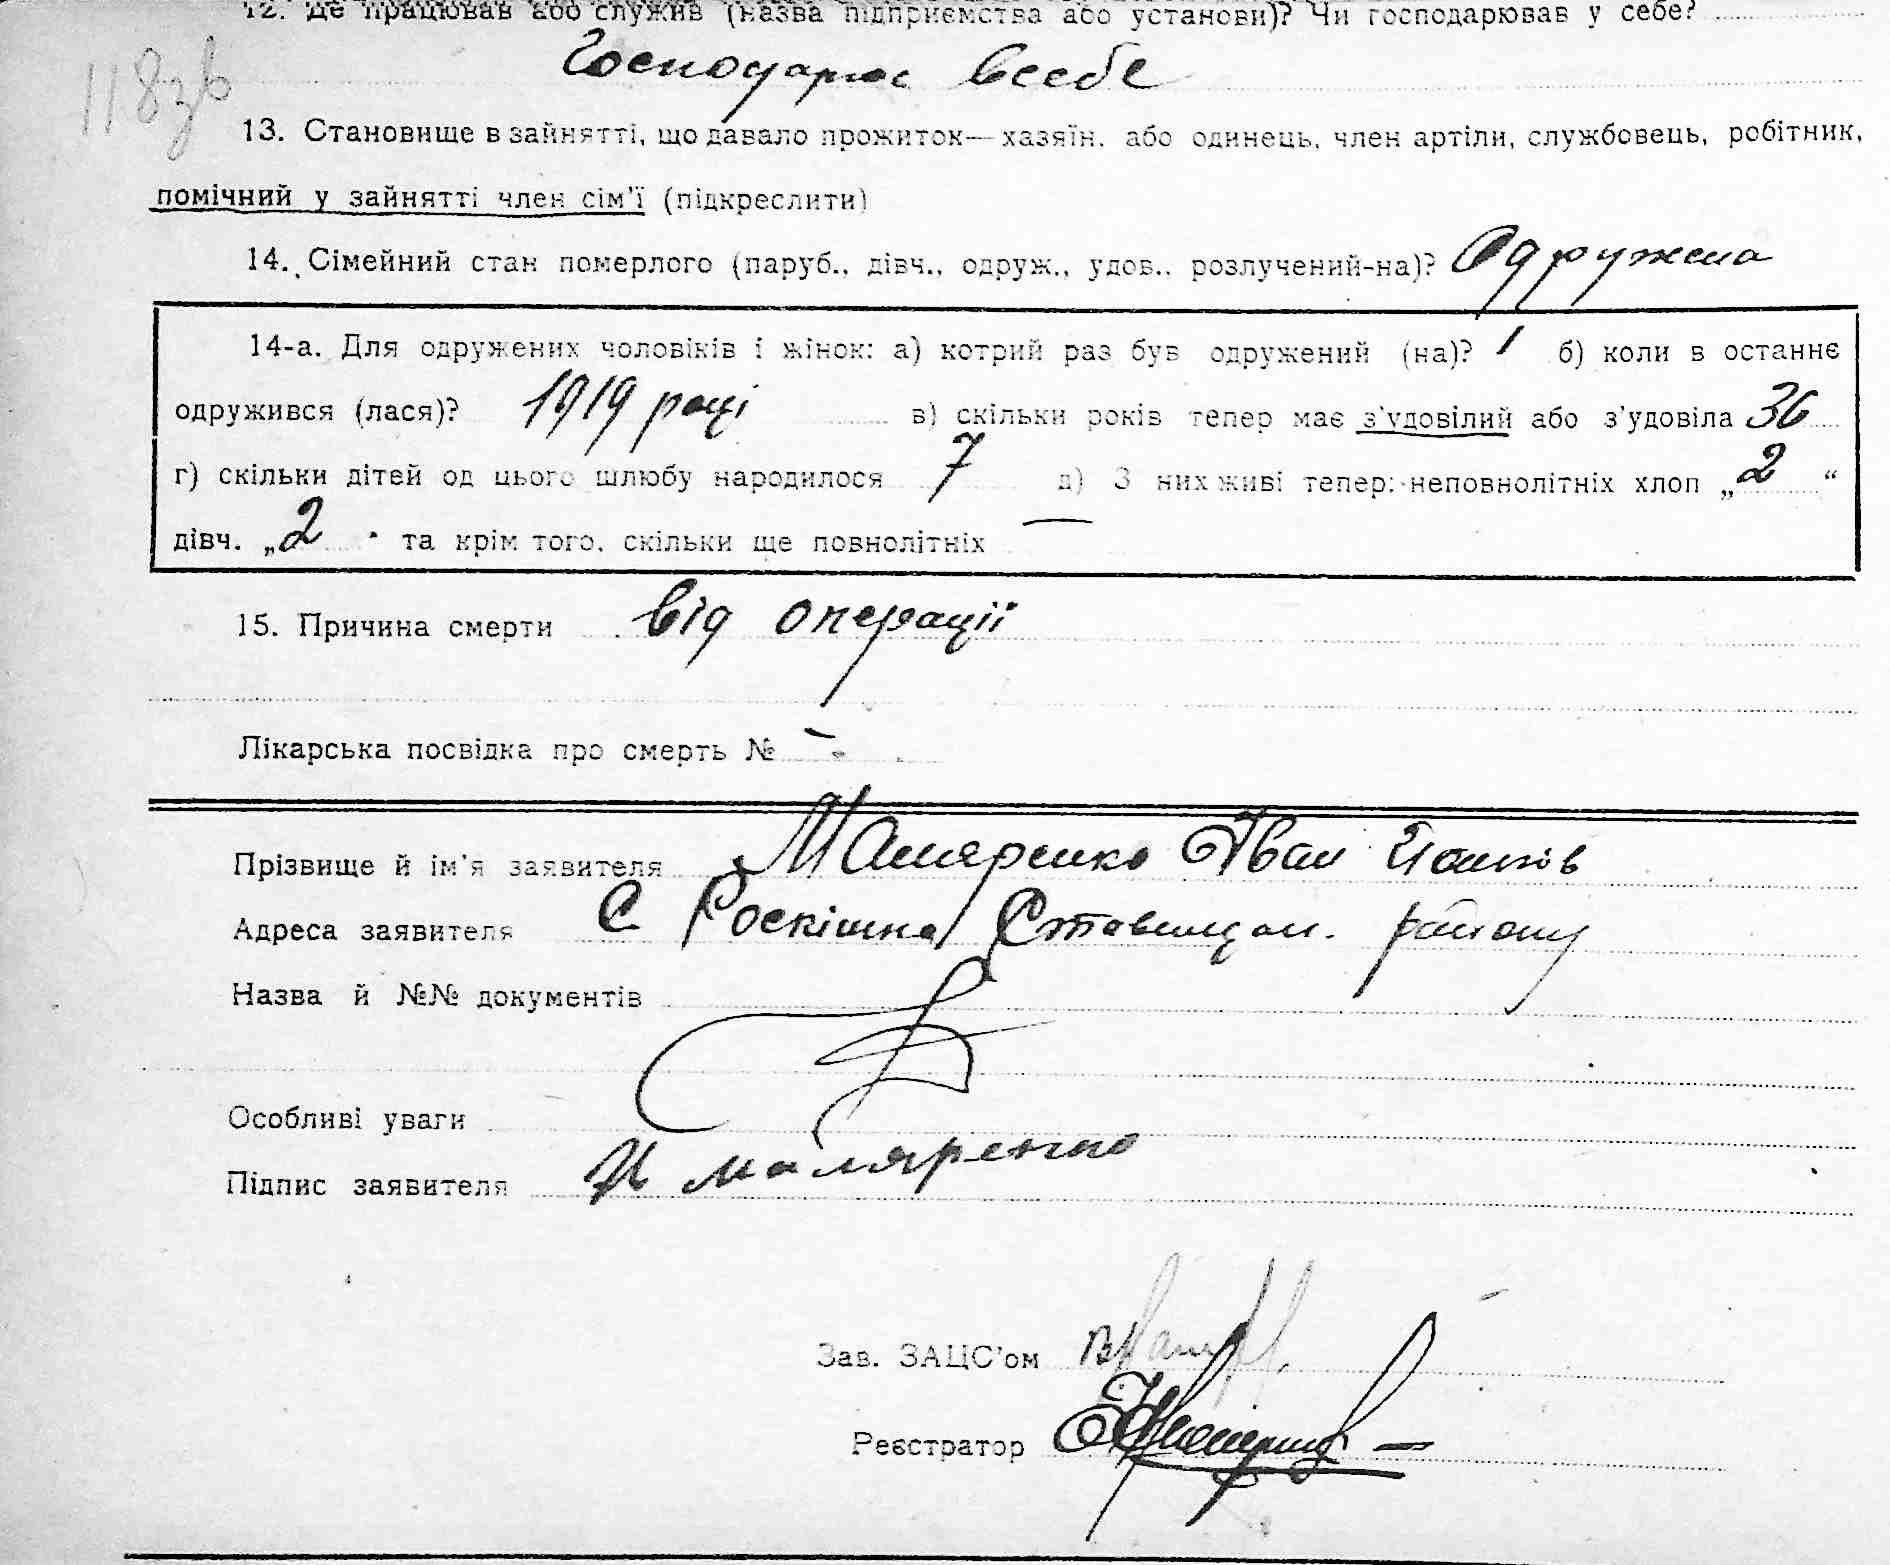 12. Де працював або служив (назва підприємства або установи)? Чи господарював у себе?
Господарює всебе
118зв
13. Становище в зайнятті, що давало прожиток—хазяїн. або одинець, член артіли, службовець, робітник,
помічний у зайнятті член сім'ї (підкреслити)
14. Сімейний стан померлого (паруб., дівч., одруж., удов.. розлучений-на)? Одружена
14-а. Для одружених чоловіків і жінок: а) котрий раз був одружений (на)? 1 б) коли в останнє
одружився (лася)? 1919 році в) скільки років тепер має з'удовілий або з'удовіла 36
г) скільки дітей од цього шлюбу народилося 7 д) З них живі тепер: неповнолітніх хлоп „2“
дівч. „2 та крім того. скільки ще повнолітніх —
15. Причина смерти від операції
Лікарська посвідка про смерть № -
Прізвище й ім'я заявителя Маляренко Іван
Адреса заявителя С Роскішна Ставищан. району
Назва й №№ документів
Особливі уваги
Підпис заявителя И маляренко
Зав. ЗАЦС'ом
Реєстратор